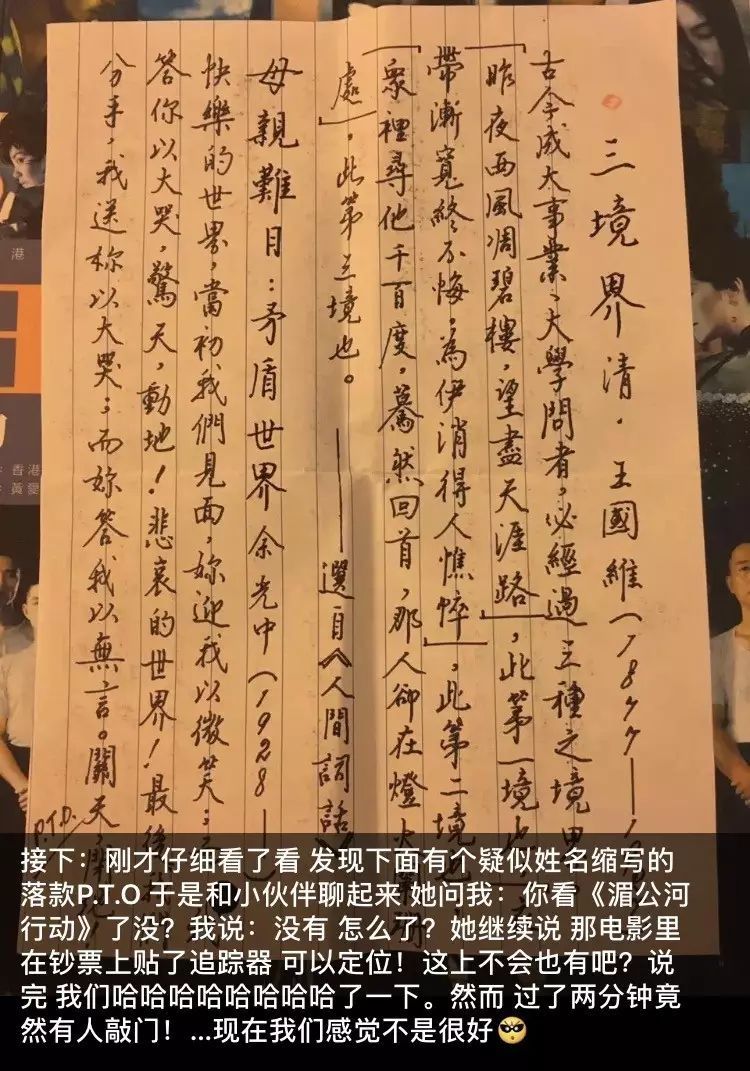 三境界清·王國維(1877—19
古今成大事業、大學問者,必經過三種之境界
「昨夜西風凋碧樓,望盡天涯路」,此第一境也
帶漸寬終不悔,為伊消得人憔悴」,此第二境也
「眾裡尋他千百度,驀然回首,那人卻在燈火
處」,此第三境也。——選自《人間詞話》
母親難日:矛盾世界余光中(1928—)
快樂的世界,當初我們見面,妳迎我以微笑;
答你以大哭,驚天,動地!悲哀的世界!最後
分手,我送妳以大哭;而妳答我以無言。關天,
P.T.O.
港
香港
黃愛
接下:刚才仔细看了看 发现下面有个疑似姓名缩写的
落款P.T.O 于是和小伙伴聊起来 她问我:你看《湄公河
行动》了没?我说:没有 怎么了?她继续说 那电影里
在钞票上贴了追踪器 可以定位!这上不会也有吧?说
完 我们哈哈哈哈哈哈哈哈了一下。然而 过了两分钟竟
然有人敲门!...现在我们感觉不是很好